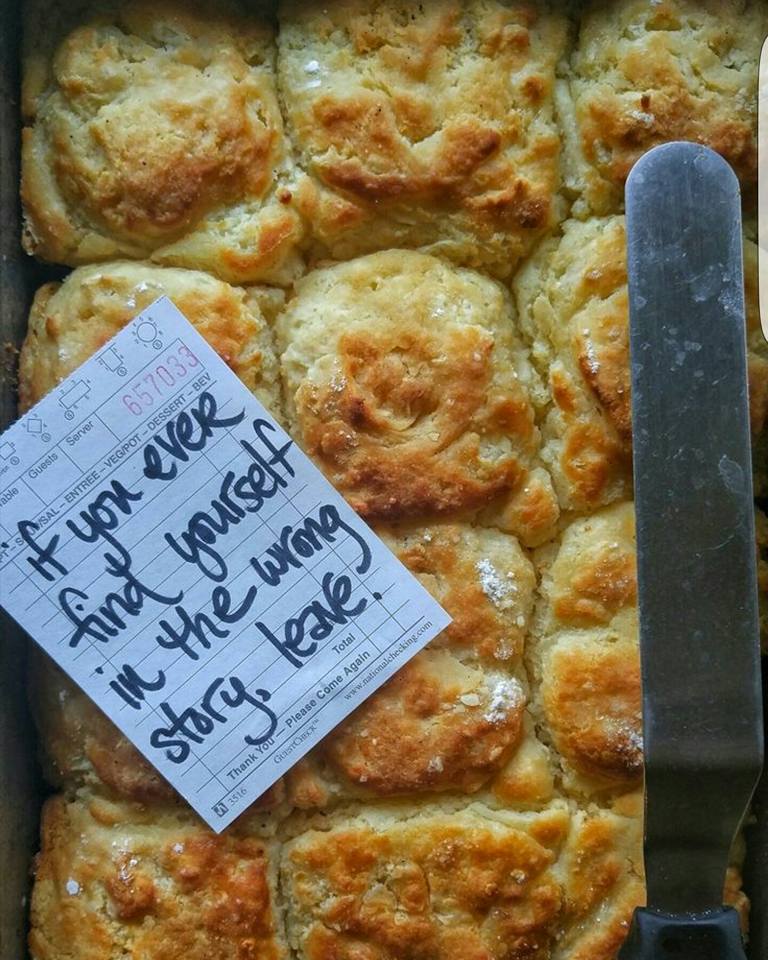 657033
Table Guests Server
APPT - SOUP/SAL - ENTREE - VEG/POT - DESSERT - BEV
if you ever
find yourself
in the wrong
story, leave.
Total
Thank You - Please Come Again
GUESTCHECK™ www.nationalchecking.com
3516